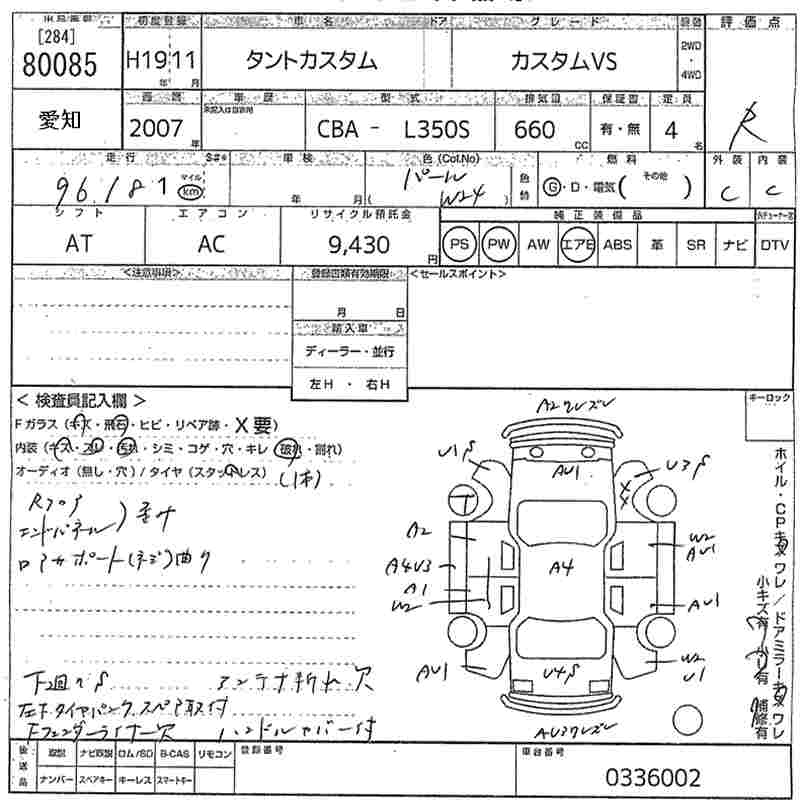 [284]
80085
初度登録 車名 ドア グレード 評価点
H19 11 タントカスタム カスタムVS 2WD・4WD R
年 月
愛知
車歴 型式 排気量 保証書 定員
2007年 CBA - L350S 660cc 有・無 4名
走行 車検 色(Col.No) 燃料 外装 内装
96,181 マイル km 年 月 パール W24 色替 G・D・電気( その他 ) C C
シフト エアコン リサイクル預託金 純正装備品
AT AC 9,430円 PS PW AW エアB ABS 革 SR ナビ DTV
<注意事項> 登録書類有効期限 <セールスポイント>
月 日
輸入車
ディーラー・並行
左H・右H
<検査員記入欄> キーロック
Fガラス(キズ・飛石・ヒビ・リペア跡・X要)
内装(キズ・スレ・汚れ・シミ・コゲ・穴・キレ・破れ・割れ)
オーディオ(無し・穴)/タイヤ(スタッドレス)
(1本)
Rフロア
エンドパネル
ロアサポート(ネジ)曲り
アンテナ折れ欠
左下タイヤパンク、スペア取付
ハンドルカバー付
A2ワレズレ
U1 AU1 U3
A2 W2 AU1
A4U3 A4
A1 W2 AU1
AU1 U4 W2 U1
AU3ワレズレ
ホイル・CPキズワレ/ドアミラーキズワレ
小キズ有 小凹有 補修有
後送品 取説 ナビ取説 ロム/SD B-CAS リモコン 登録番号 車台番号
ナンバー スペアキー キーレス スマートキー 0336002